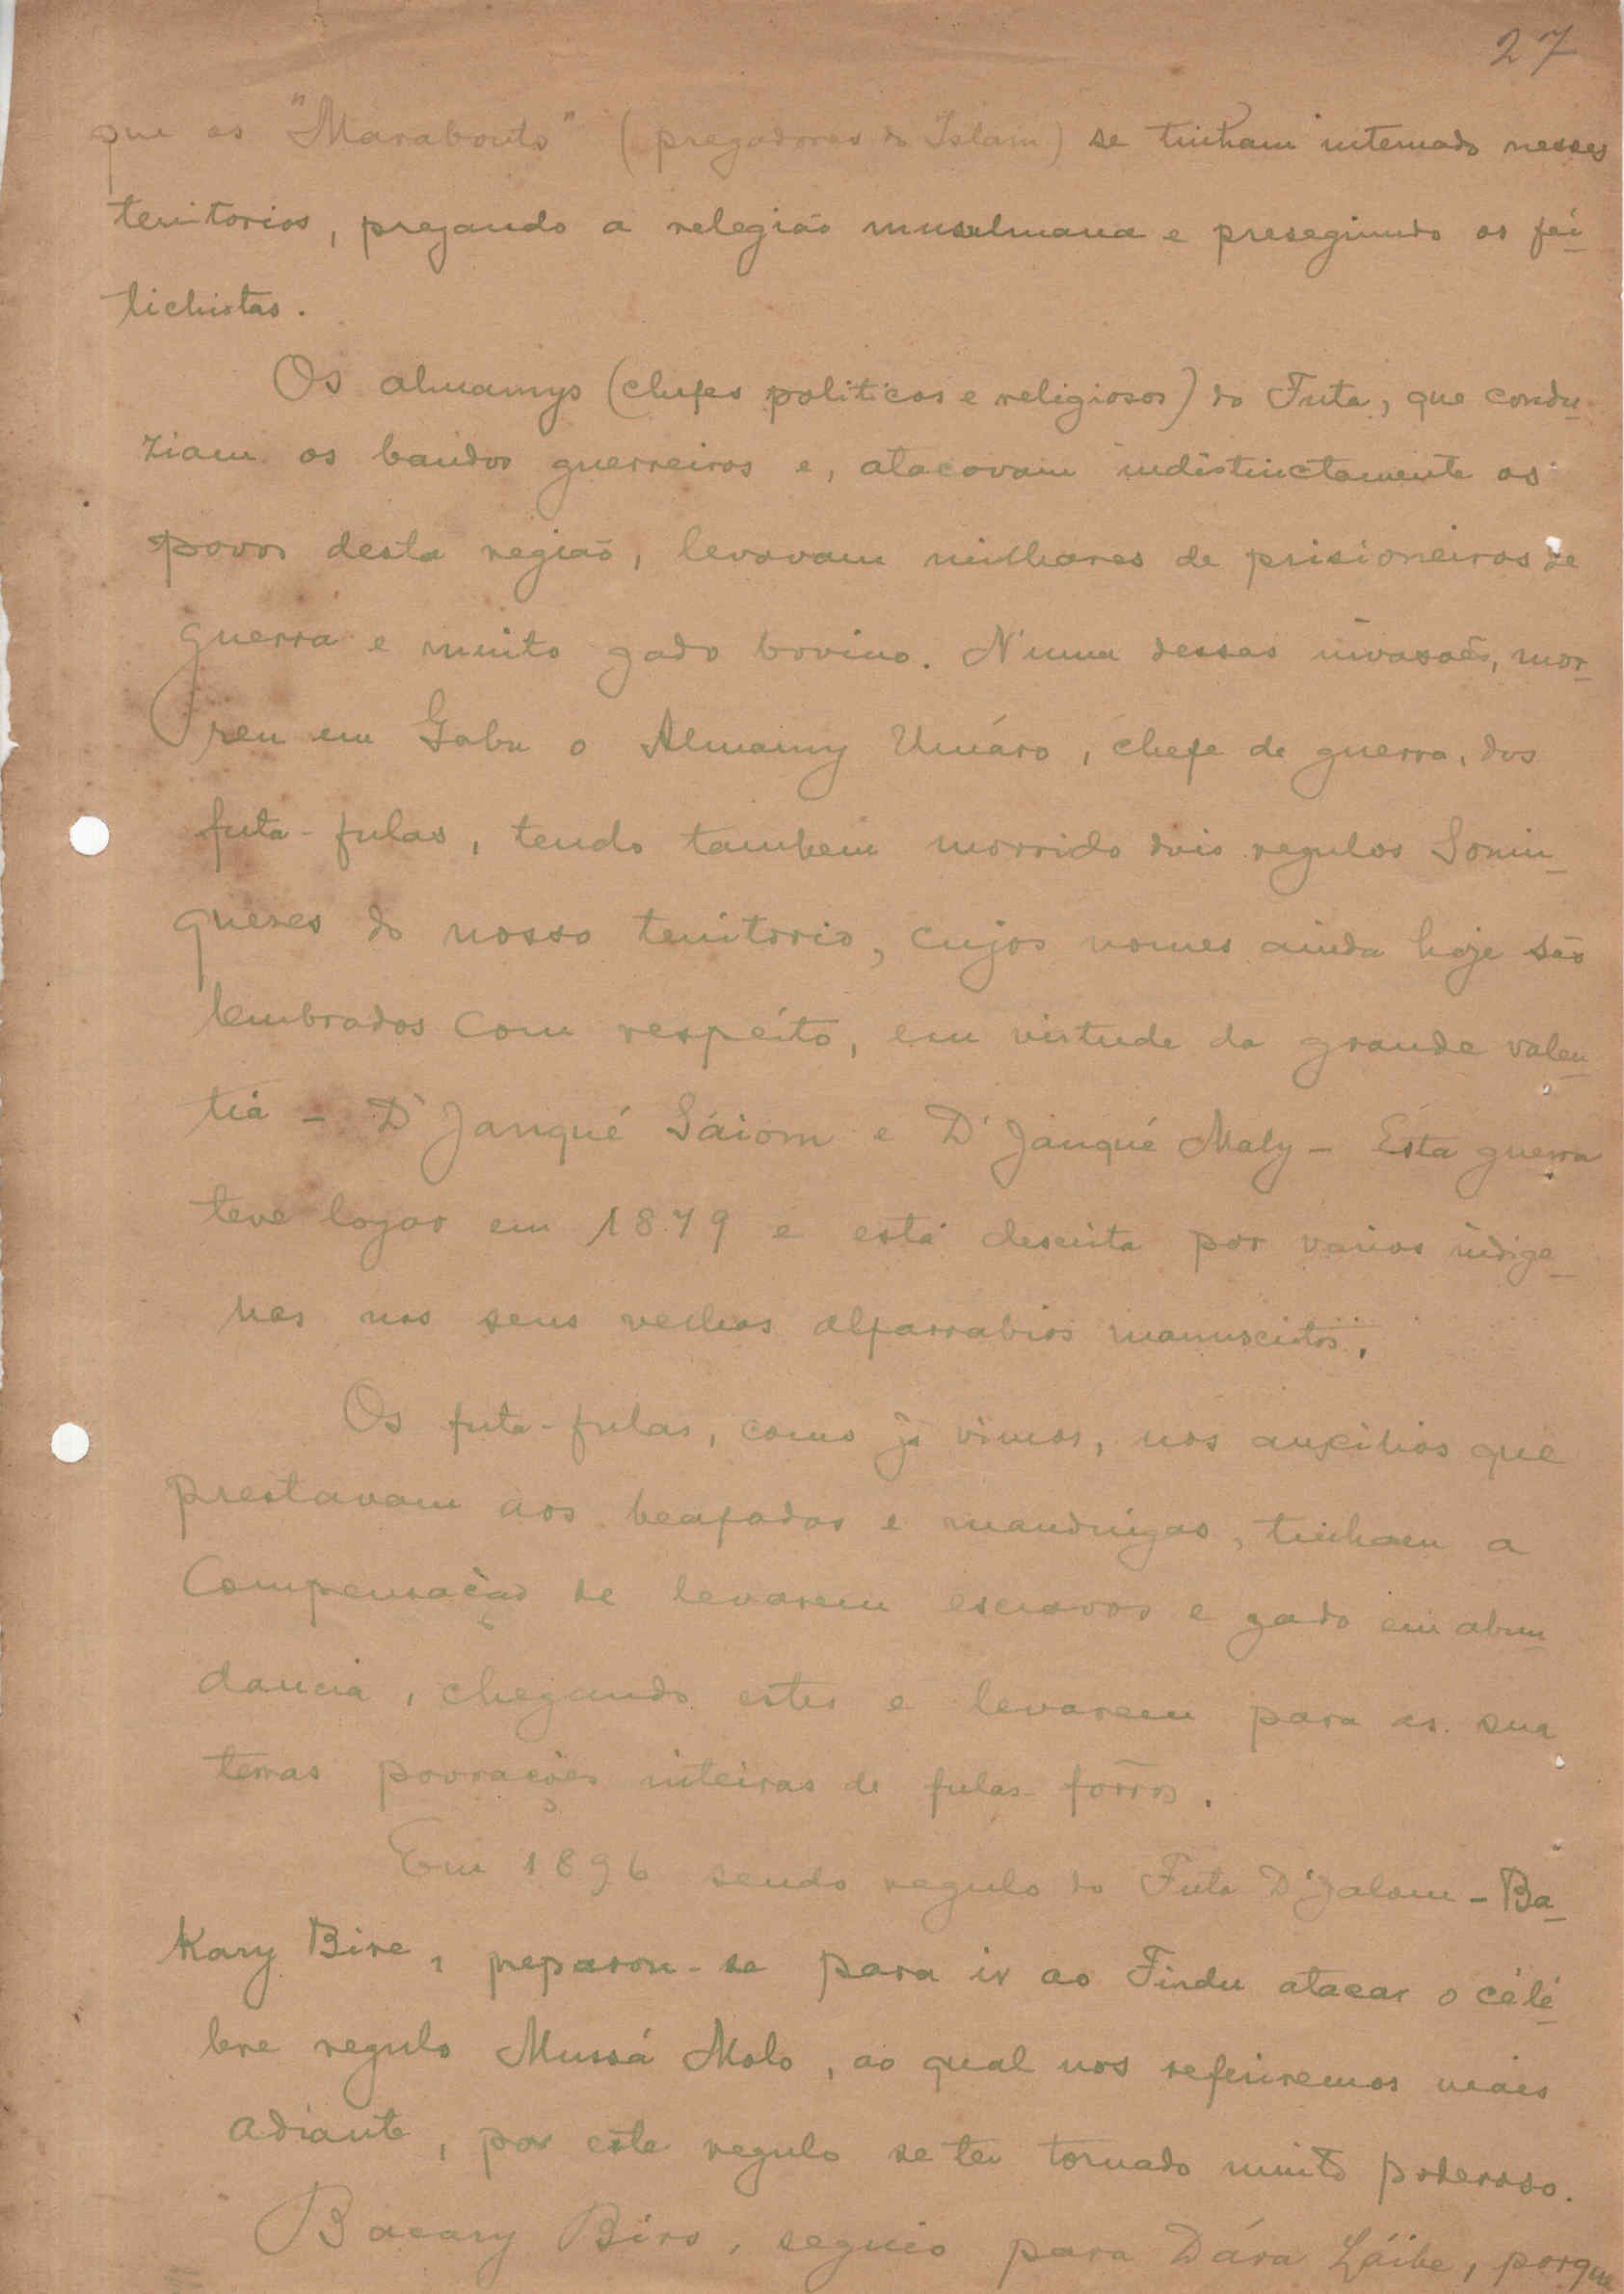 27
que os "Marabouts" (pregadores do Islam) se tinham internado nesses
territorios, pregando a relegião musulmana e presegiundo os féi
tichistas.
Os almamys (chefes politicos e religiosos) do Futa, que condu-
ziam os bandos guerreiros e, atacavam indistinctamente os
povos desta região, levavam milhares de prisioneiros de
guerra e muito gado bovino. N'uma dessas invasões, mor-
reu em Gabu o Almamy Umáro, chefe de guerra, dos
futa-fulas, tendo tambem morrido dois regulos Sonin-
queses do nosso territorio, cujos nomes ainda hoje são
lembrados com respeito, em virtude da grande valen-
tia - D'Janqué Sáiom e D'Janqué Maly - Esta guerra
teve logar em 1879 e está descrita por varios indige-
nas nos seus velhos alfarrabios manuscritos.
Os futa-fulas, como já vimos, nos auxilios que
prestavam aos beafadas e mandingas, tinham a
compensação de levarem escravos e gado em abun-
dancia, chegando estes e levarem para as sua
terras povoações inteiras de fulas-fôrros.
Em 1896 sendo regulo do Futa D'Jalom - Ba-
kary Bire, preparou-se para ir ao Firdu atacar o céle-
bre regulo Mussá Molo, ao qual nos referiremos mais
adiante, por este regulo se ter tornado muito poderoso.
Bacary Biro, seguio para Dára Láibe, porque